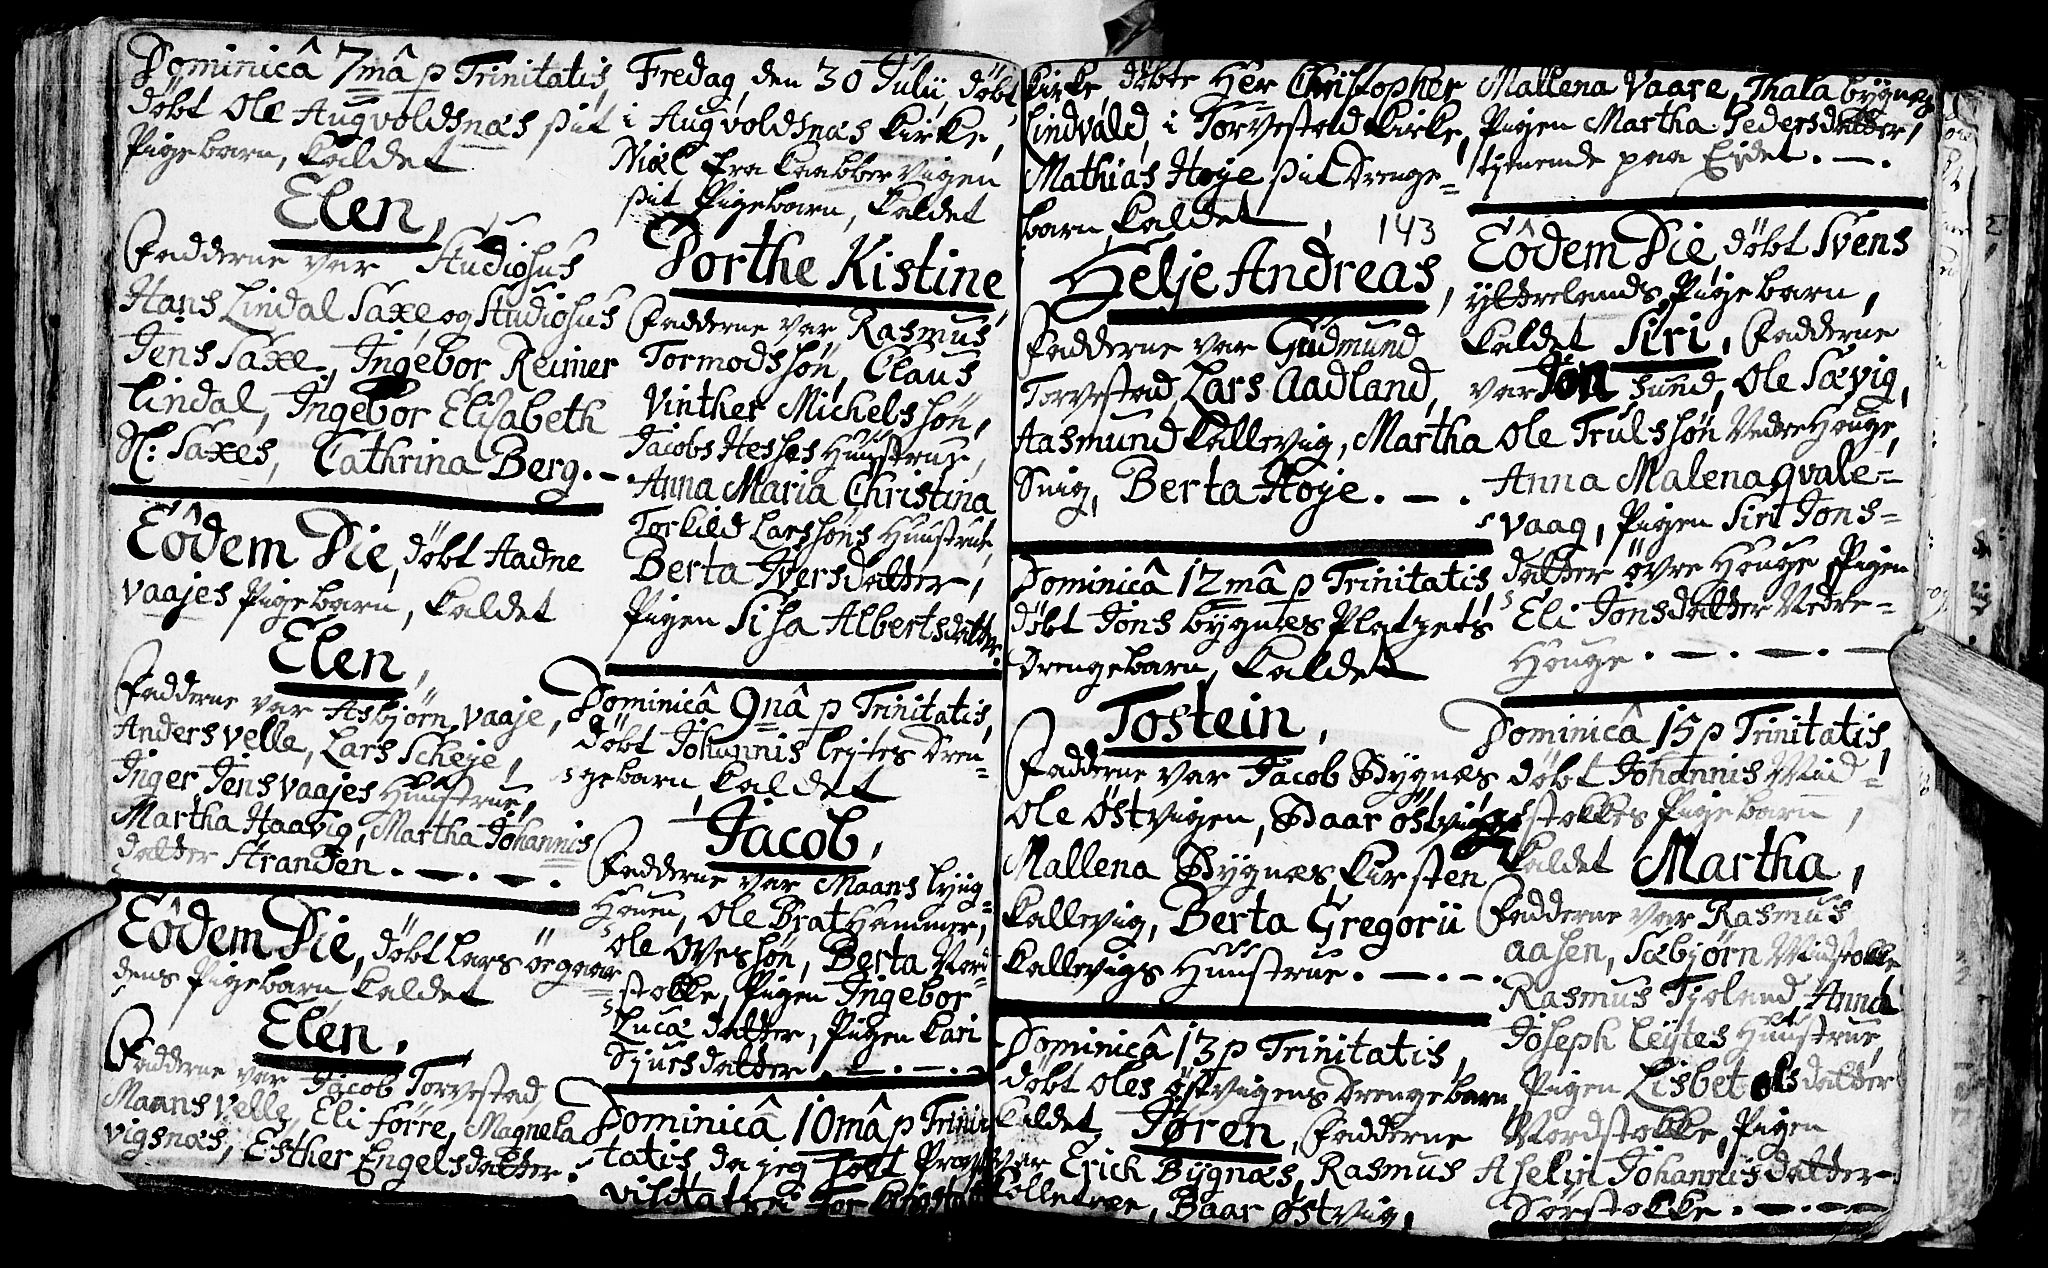 Dominicâ 7mâ p Trinitatis,
döbt Ole Augvoldsnæs sit
Pigebarn, kaldet
Elen,
Fadderne var Studiosus
Hans Lindal Saxe og Studiosus
Jens Saxe, Ingebor Reimer
Lindal, Ingebor Elisabeth
Sl: Saxes, Cathrina Berg.
Eôdem Die, döbt Aadne
Vaajes Pigebarn, kaldet
Elen,
Fadderne var Asbjörn Vaaje,
Anders Velle, Lars Scheje,
Inger Jens Vaajes Huustrue,
Martha Haavig, Martha Johannis
datter Stranden.
Eôdem Die, döbt Lars öegaar
dens Pigebarn, kaldet
Elen.
Fadderne var Jacob Torvestad,
Maans Velle, Eli Förre, Magnela
Vigsnæs, Esther Engelsdatter.
Fredag, den 30 Julii, döbt,
i Augvoldsnæs Kirke,
Niæl fra Kaabber Vigen
sit Pigebarn, kaldet
Dorthe Kistine,
Fadderne var Rasmus
Tormodssøn, Claus
Vinther Michelssøn,
Jacobs Hesses Huustrue,
Anna Maria Christina
Torkild Larssøns Huustrue,
Berta Iversdatter,
Pigen Sisa Albertsdatter.
Dominicâ 9nâ p Trinitatis,
döbt Johannis Leytes Dren-
gebarn, kaldet
Jacob,
Fadderne var Maans Lyng-
Houen, Ole Brat Hammer,
Ole Ovessøn, Berta Nord-
stokke, Pigen Ingebor
Lucæ datter, Pigen Kari
Sjursdatter.
Dominicâ 10mâ p Trini
tatis, da jeg holt
visitatz i
Kirke, döbte Her Christopher
Lindvald, i Torvestad Kirke,
Mathias Høye sit Drenge-
barn, kaldet, 143
Helje Andreas,
Fadderne var Gudmund
Torvestad, Lars Aadland,
Aasmund Kallevig, Martha
Snig, Berta Høye.
Dominicâ 12mâ p Trinitatis,
döbt Jons Bygnes Platzets
Drengebarn, kaldet
Tostein,
Fadderne var Jacob Bygnæs
Ole Østvigen, Baar
Mallena Bygnæs, Kirsten
Kallevig, Berta Gregorii
Kallevigs Huustrue.
Dominicâ 13 p Trinitatis,
döbt Oles Østvigens Drengebarn,
kaldet Jören, Fadderne
var Erich Bygnæs, Rasmus
Baar Østvig,
Mallena Vaare, Thala Bygnæs
Pigen Martha Pedersdatter,
tjenende paa Eidet.
Eôdem Die, döbt Svens
Ytterlends Pigebarn,
kaldet Siri, Fadderne
var Jon Sund, Ole Sævig,
Ole Trulssøn Nedre Houge,
Anna Malena Qvale-
vaag, Pigen Siri Jons-
datter övre Houge, Pigen
Eli Jonsdatter Nedre-
Houge.
Dominicâ 15 p Trinitatis,
döbt Johannis Mid-
stokkes Pigebarn,
kaldet Martha,
Fadderne var Rasmus
Aasen, Sæbjørn Midstokke
Rasmus Tjoland, Anna
Joseph Leytes Huustrue,
Pigen Lisbet Olsdatter
Nordstokke, Pigen
Aselin Johannisdatter
Sørstokke.